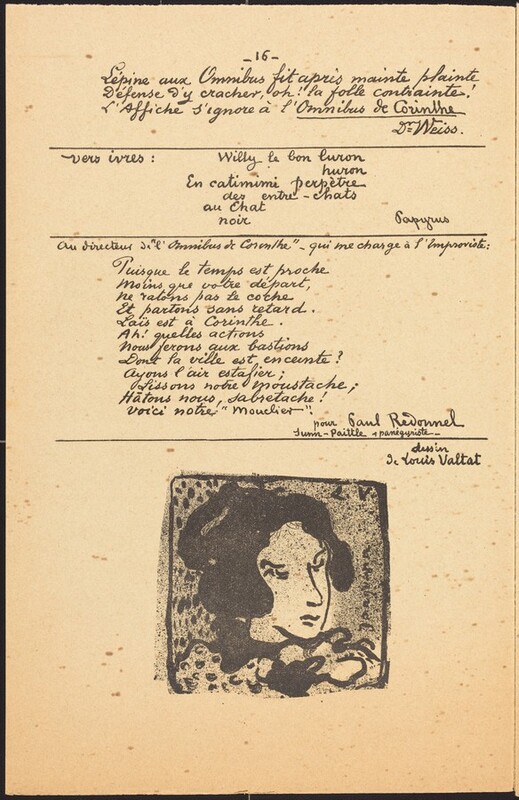 _16_
Lépine aux Omnibus fit après mainte plainte
Défense d'y cracher, oh! la folle contrainte!
L'Affiche s'ignore à l'Omnibus de Corinthe
Dr Weiss.
vers ivres :
Willy le bon luron
huron
En catimini perpètre
des entre-chats
au Chat
noir
Papyrus
Au directeur de "l'Omnibus de Corinthe" - qui me charge à l'Improviste:
Puisque le temps est proche
Moins que votre départ,
Ne ratons pas le coche
Et partons sans retard.
Laïs est à Corinthe.
Ah! quelles actions
Nous ferons aux bastions
Dont la ville est enceinte?
Ayons l'air estafier;
Lissons notre moustache;
Hâtons nous, sabretache!
Voici notre "Mouclier"
pour Paul Redonnel
panégyriste
dessin
de Louis Valtat
L V